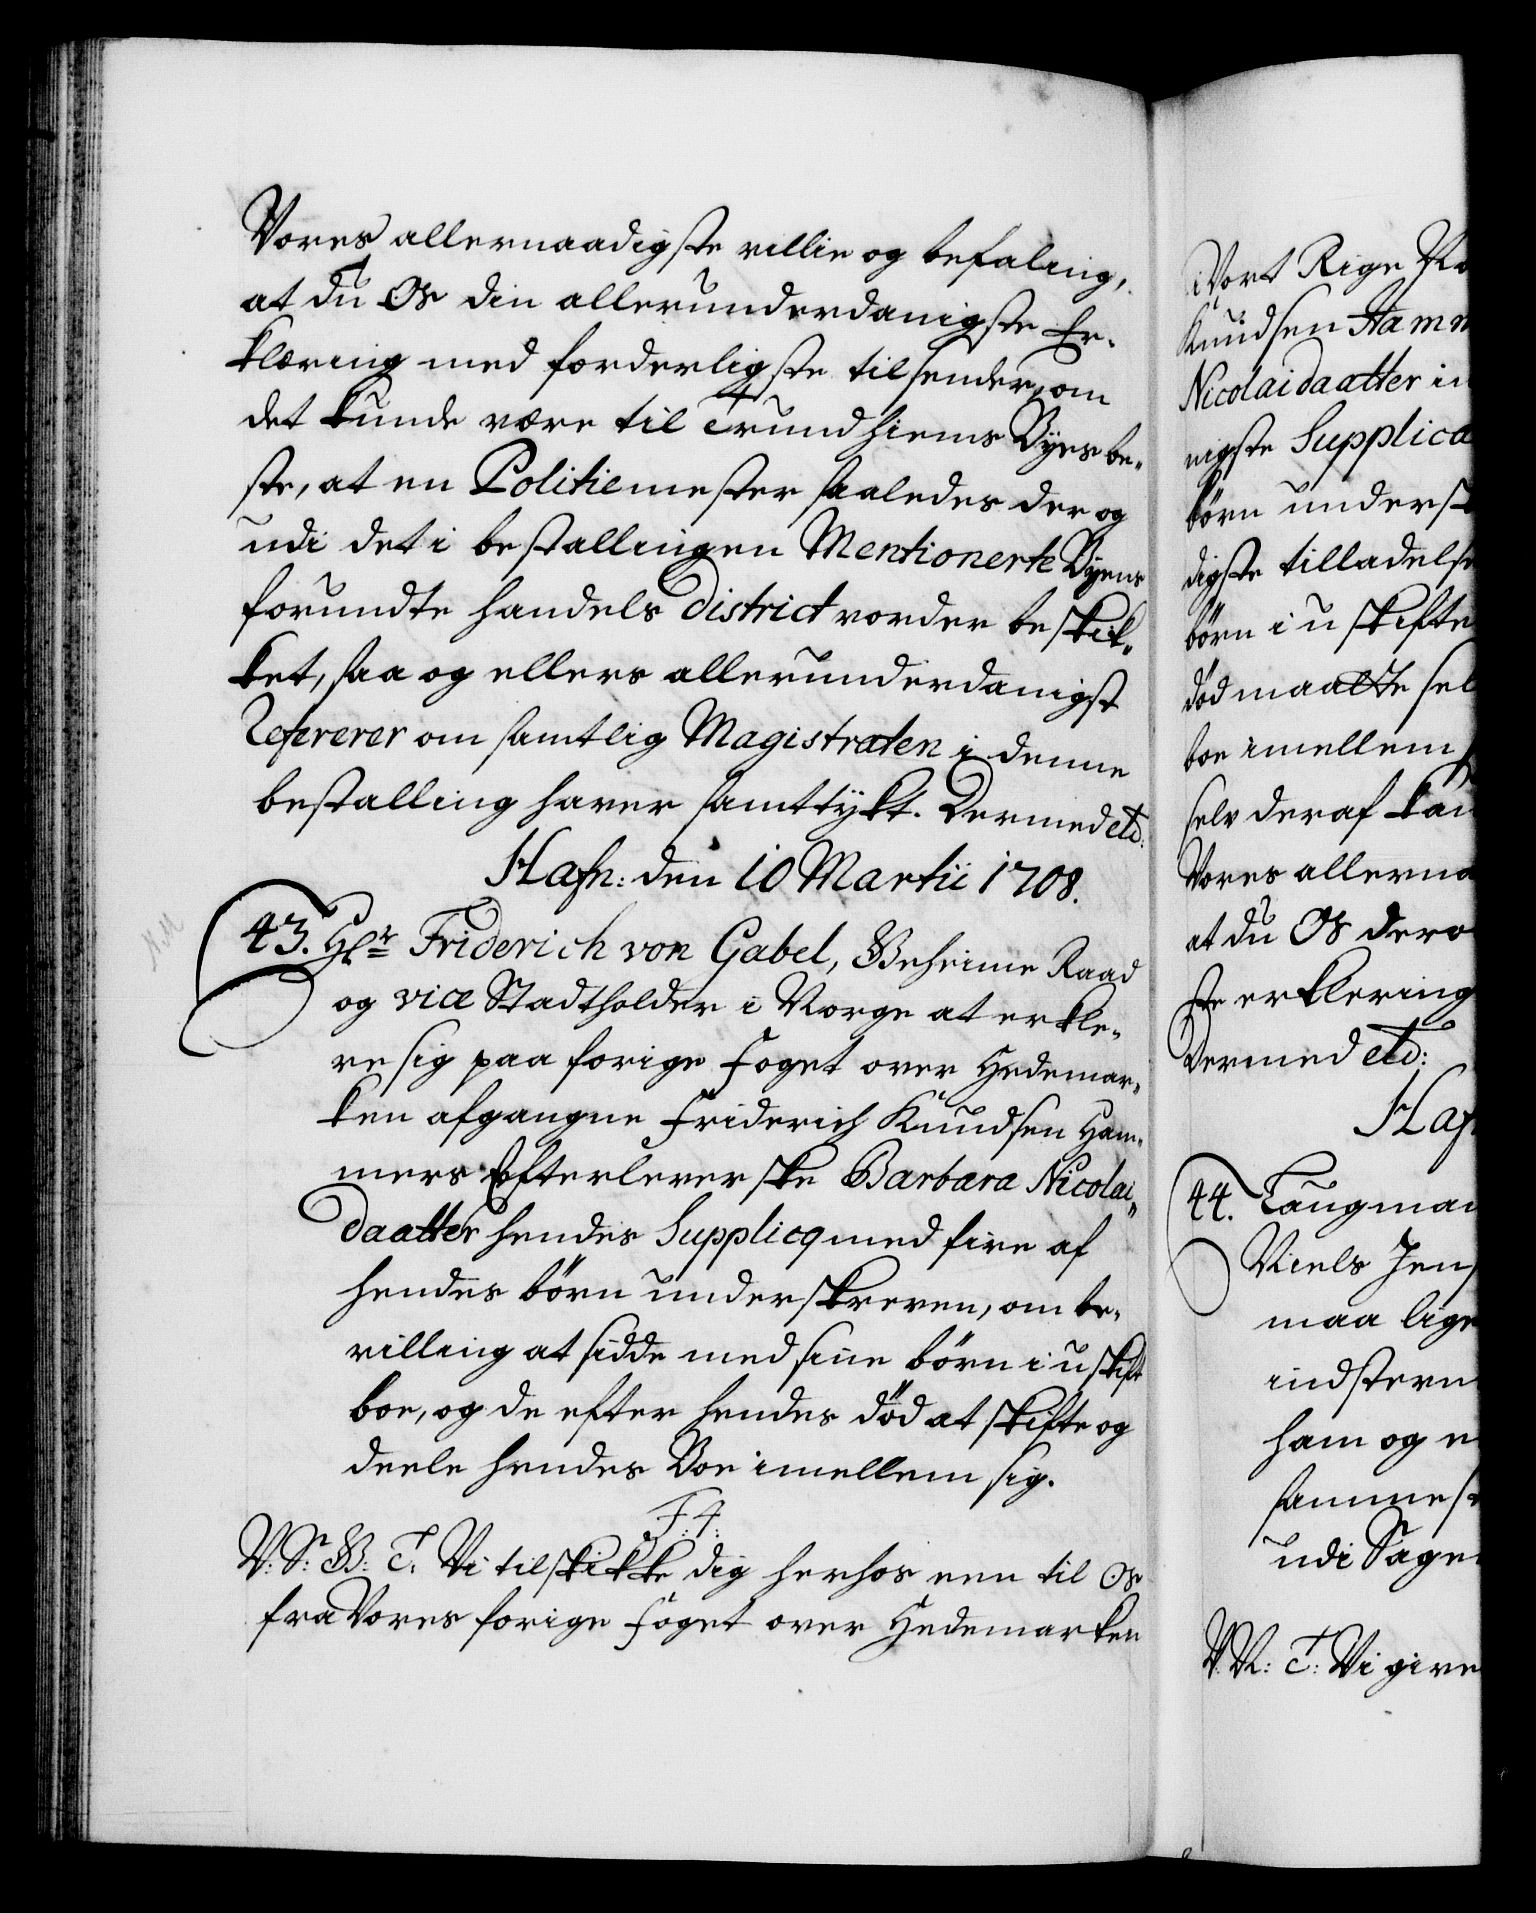 Vores allernaadigste villie og befaling,
at du Os din allerunderdanigste Er-
klæring med forderligste tilsender, om
det kunde være til Trundhiems Byes be-
ste, at en Politiemester saaledes der og
udi det i bestallingen Mentionerte Byens
forundte handels district vorder beskik-
ket, saa og ellers allerunderdanigst
Refererer om samtlig Magistraten i denne
bestalling haver samttykt. Dermed etc:
Hafn: den 10 Martii 1708.
43. Hr Friderich von Gabel, Geheime Raad
og vice Stadtholder i Norge at erkle-
re sig paa forige Foget over Hedemar-
ken afgangne Friderich Knudsen Ham-
mers Efterleverske Barbara Nicolai-
daatter hendes Supplicq med fire af
hendes börn underskreven, om be-
villing at sidde med sine börn i uskift
boe, og de efter hendes död at skifte og
deele hendes Boe imellem sig.
F: 4:
V: S: G: T: Vi tilskikke dig herhos een til Os
fra Vores forige Foget over Hedemarken
i Vort Rige No
Knudsen Hamm
Nicolaidaatter in
nigste Supplica
börn undersk
digste tilladelse
börn i uskifte
död maatte sel
boe imellem
selv deraf kan
Vores allerna
at du Os dero
ste erklering
Dermed etc:
Haf
44. Laugman
Niels Jens
maa lige
indstevn
ham og e
samme s
udi Sage
V. N: T: Vi give